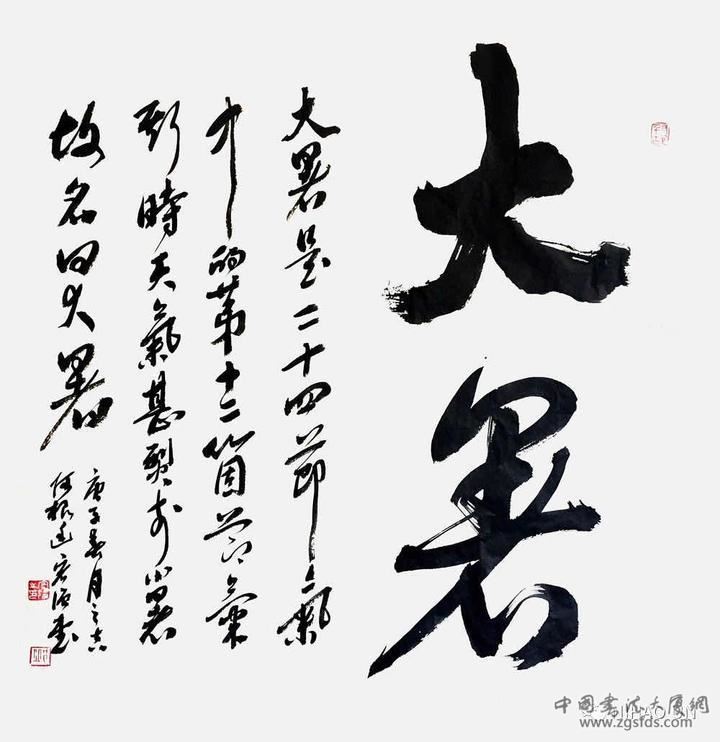 大暑
大暑是二十四節氣
中的第十二箇節氣
斯時天氣甚烈於小暑
故名曰大暑
庚子春月之吉
中國書法大厦網
www.zgsfds.com